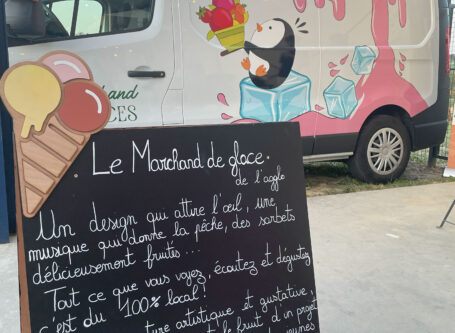 and
CES
Le Marchand de glace.
de l'agglo
Un design qui attire l'œil, une
musique qui donne la pêche, des sorbets
délicieusement fruités...
Tout ce que vous voyez, écoutez et dégustez
c'est du 100% local!
ture artistique et gustative,
le fruit d'un projet
jeunes